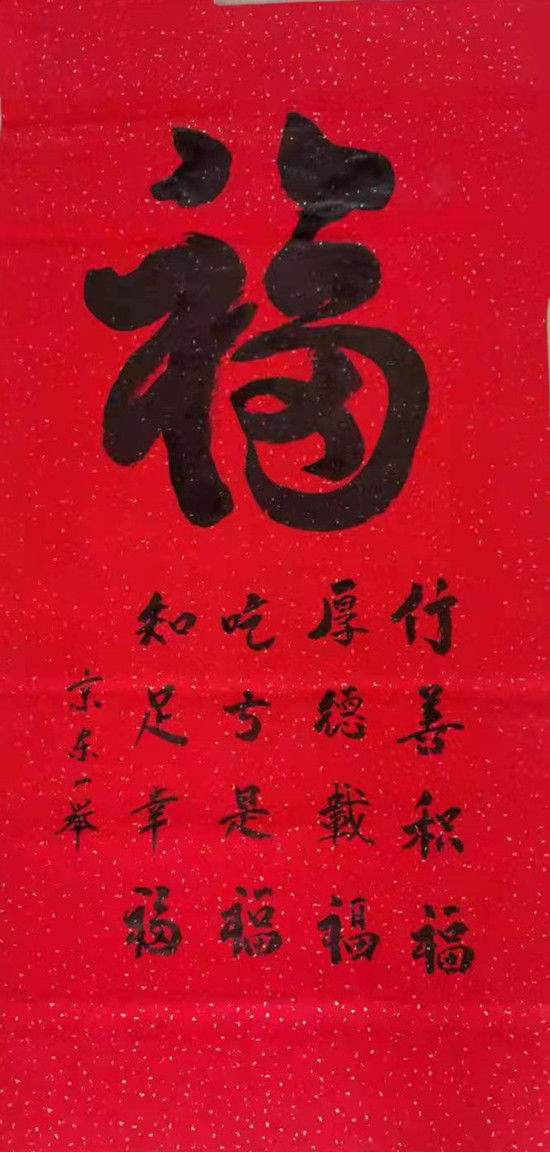 福
行善积福
厚德載福
吃亏是福
知足幸福
京东一举